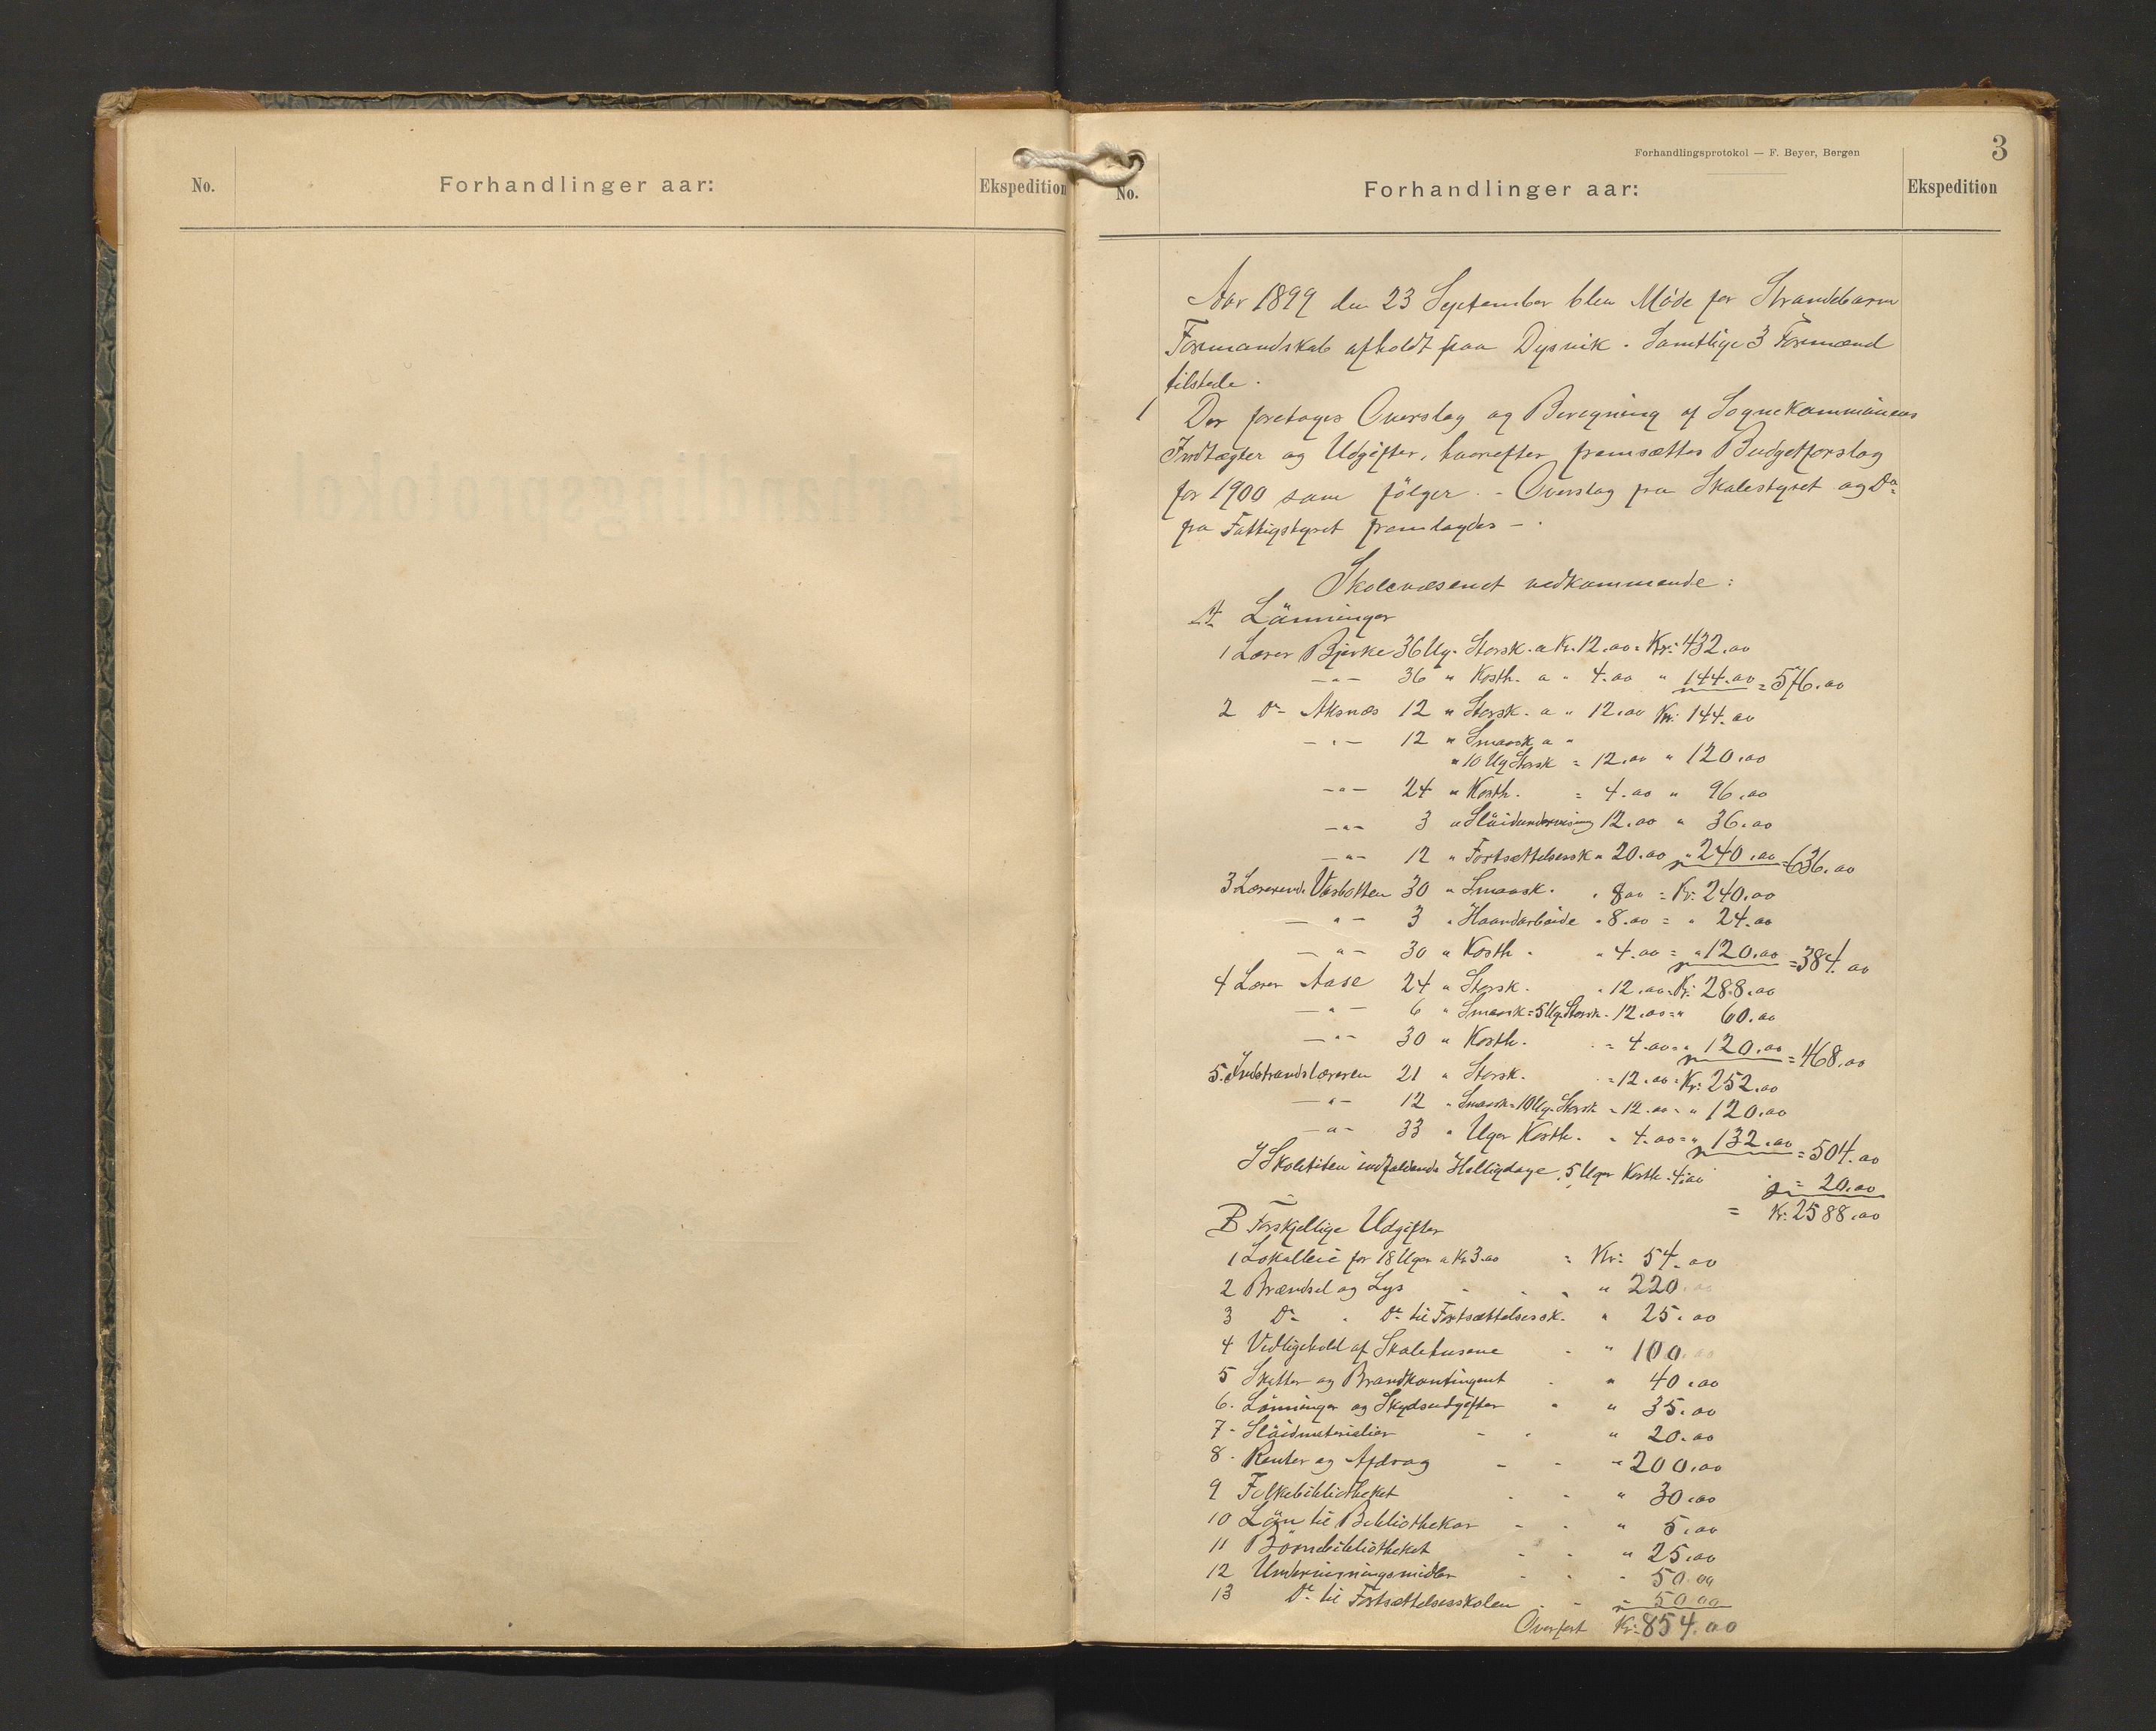 No.
Forhandlinger aar:
Ekspedition
Forhandlingsprotokol — F. Beyer, Bergen
3
No.
Forhandlinger aar:
Ekspedition
Aar 1899 den 23 September blev Möde for Strandebarm
Formandskab afholdt paa Dysvik. Samtlige 3 Formænd
tilstede.
1
Der foretoges Overslag og Beregning af Sognekommunens
Indtægter og Udgifter, hvorefter fremsættes Budgetforslag
for 1900 som fölger. - Overslag fra Skolestyret og Do
fra Fattigstyret fremlagdes - .
Skolevæsenet vedkommende:
A Lönninger
1 Lærer Bjerke 36 Ug. Storsk. a Kr. 12.00 = Kr: 432.00
-"- 36 " Kosth. a " 4.00 " 144.00 = 576.00
2 Do Aksnæs 12 " Storsk. a " 12.00 Kr: 144.00
-"- 12 " Smaask a "
" 10 Ug Storsk = 12.00 " 120.00
-"- 24 " Kosth. = 4.00 " 96.00
-"- 3 " Slöidundervisning 12.00 " 36.00
-"- 12 " Fortsættelsessk " 20.00 " 240.00 = 636.00
3 Lærerinde Vasbotten 30 " Smaask. " 8.00 = Kr: 240.00
-"- 3 " Haandarbeide " 8.00 = " 24.00
-"- 30 " Kosth. " 4.00 = " 120.00 = 384.00
4 Lærer Aase 24 " Storsk. " 12.00 = Kr: 288.00
-"- 6 " Smaask = 5 Ug. Storsk - 12.00 = " 60.00
-"- 30 " Kosth. = 4.00 = " 120.00 = 468.00
5. Indstrandslæreren 21 " Storsk. = 12.00 = Kr: 252.00
-"- 12 " Smaask = 10 Ug. Storsk = 12.00 = " 120.00
-"- 33 " Uger Kosth. " 4.00 = " 132.00 = 504.00
I Skoletiden indfaldende Helligdage, 5 Uger Kosth. 4.00 = 20.00
= Kr: 2588.00
B Forskjellige Udgifter
1 Lokalleie for 18 Uger a Kr 3.00 = Kr: 54.00
2 Brændsel og Lys " 220.00
3 Do " Do til Fortsættelsessk. " 25.00
4 Vedligehold af Skolehusene " 100.00
5 Skatter og Brandkontingent " 40.00
6. Lönninger og Skydsudgifter " 35.00
7 - Slöidmaterialier " 20.00
8 - Renter og Afdrag " 200.00
9 Folkebibliotheket " 30.00
10 Lön til Bibliothekar " 5.00
11 Börnebibliotheket " 25.00
12 Undervisningsmidler " 50.00
13 Do til Fortsættelsesskolen " 50.00
Overført Kr: 854.00